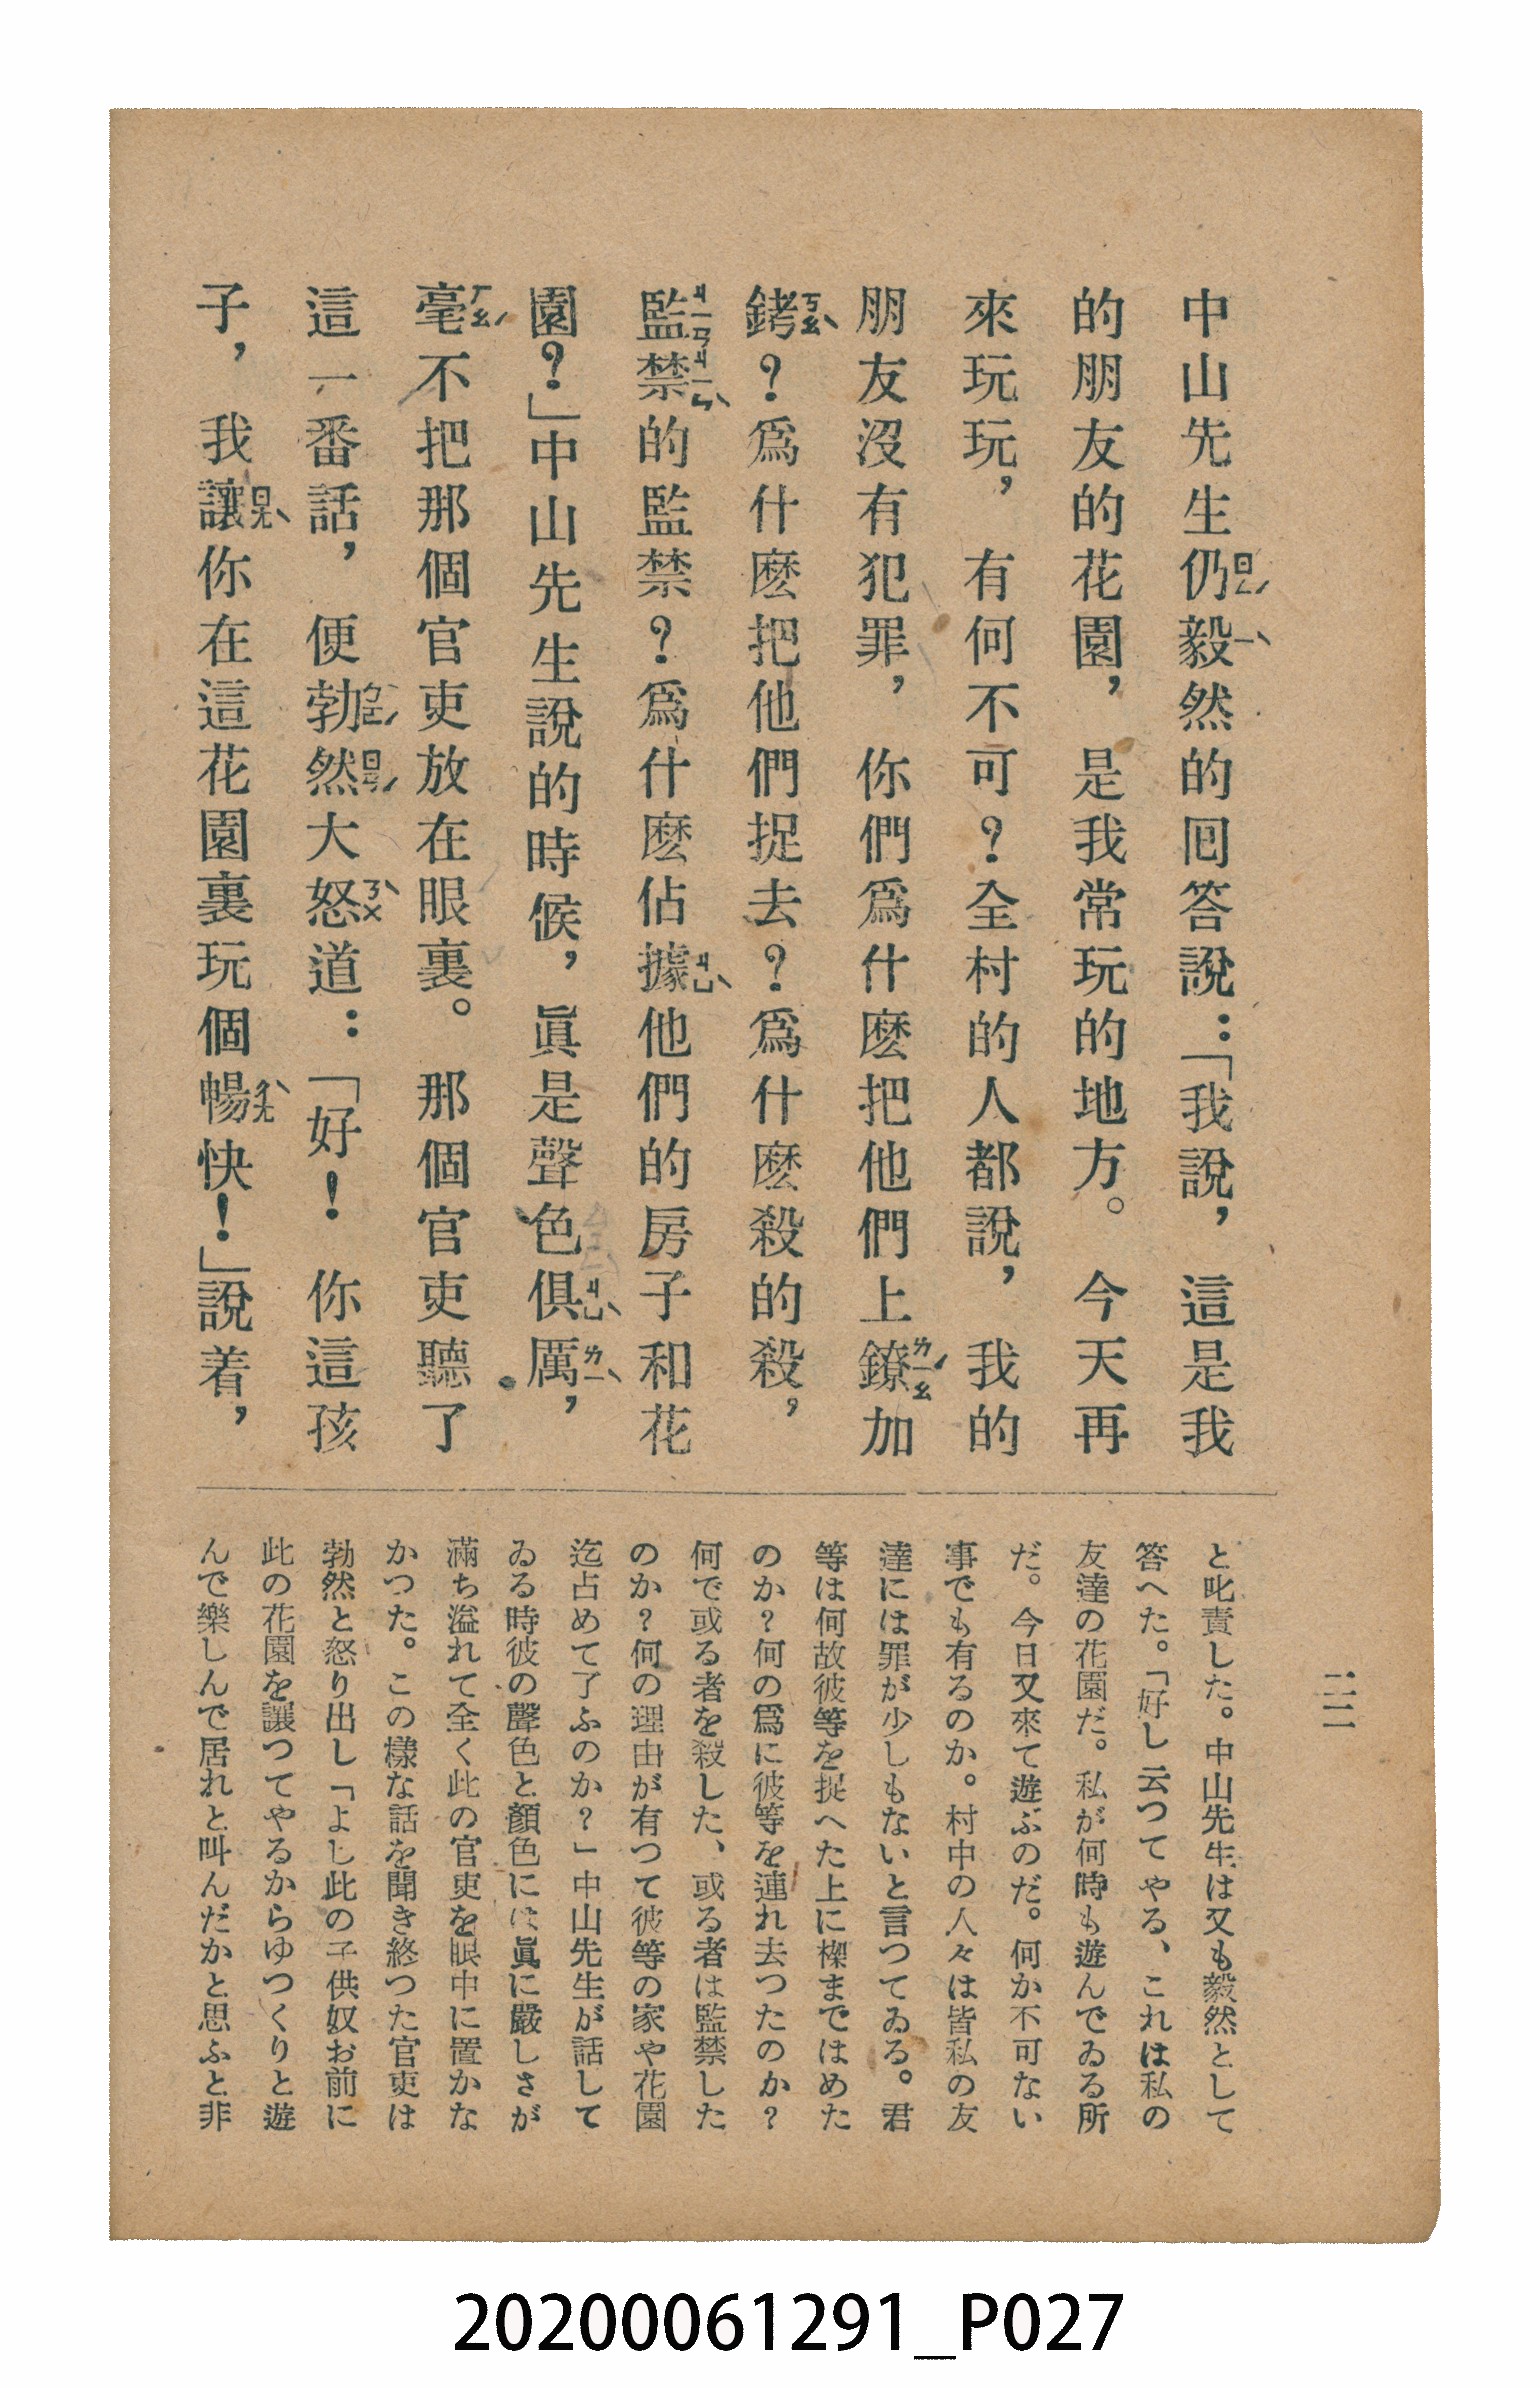 中山先生仍毅然的囘答說：「我說，這是我
的朋友的花園，是我常玩的地方。今天再
來玩玩，有何不可？全村的人都說，我的
朋友沒有犯罪，你們爲什麽把他們上鐐加
銬？爲什麽把他們捉去？爲什麽殺的殺，
監禁的監禁？爲什麽佔據他們的房子和花
園？」中山先生說的時候，眞是聲色俱厲，
毫不把那個官吏放在眼裏。那個官吏聽了
這一番話，便勃然大怒道：「好！你這孩
子，我讓你在這花園裏玩個暢快！」說着，
と叱責した。中山先生は又も毅然として
答へた。「好し云つてやる、これは私の
友達の花園だ。私が何時も遊んでゐる所
だ。今日又來て遊ぶのだ。何か不可ない
事でも有るのか。村中の人々は皆私の友
達には罪が少しもないと言つてゐる。君
等は何故彼等を捉へた上に樑まではめた
のか？何の爲に彼等を連れ去つたのか？
何で或る者を殺した、或る者は監禁した
のか？何の理由が有つて彼等の家や花園
迄占めて了ふのか？」中山先生が話して
ゐる時彼の聲色と顏色には眞に嚴しさが
滿ち溢れて全く此の官吏を眼中に置かな
かつた。この樣な話を聞き終つた官吏は
勃然と怒り出し「よし此の子供奴お前に
此の花園を讓つてやるからゆつくりと遊
んで樂しんで居れと叫んだかと思ふと非
二二
20200061291_P027